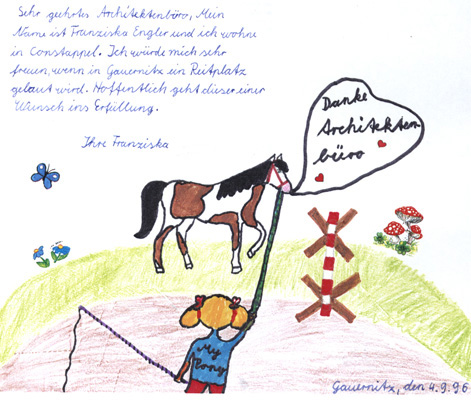 Sehr geehrtes Architektenbüro, Mein
Name ist Franziska Engler und ich wohne
in Constappel. Ich würde mich sehr
freuen, wenn in Gauernitz ein Reitplatz
gebaut wird. Hoffentlich geht dieser einer
Wunsch ins Erfüllung.
Ihre Franziska
Danke
Architekten
büro
My
Pony
Gauernitz, den 4.9.96